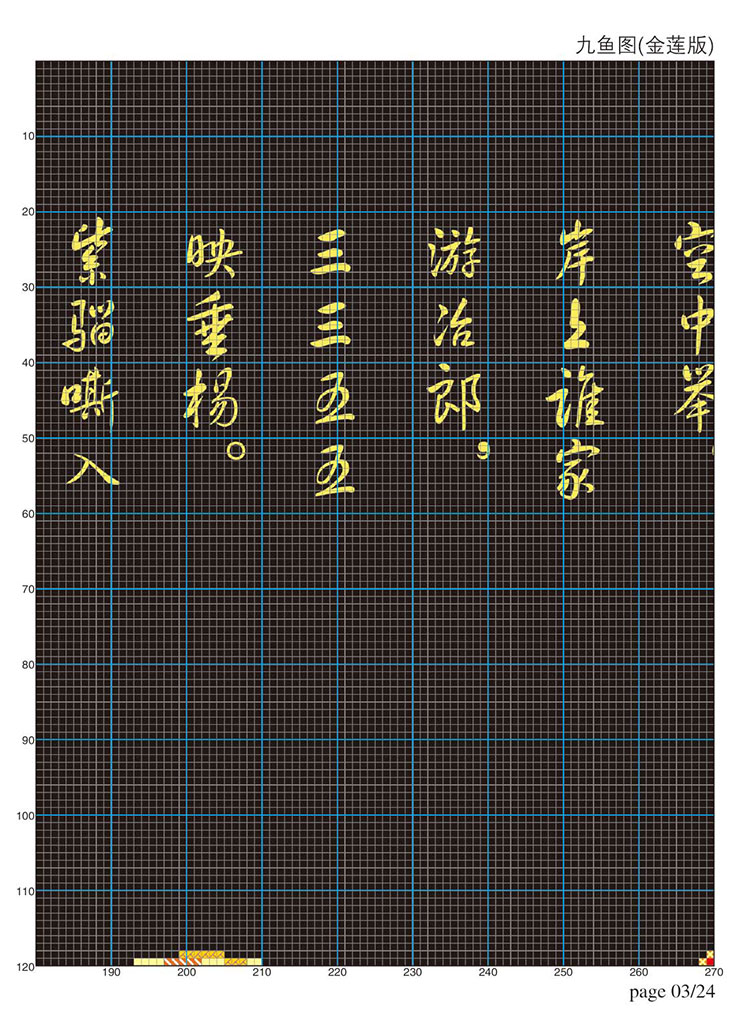 九鱼图(金莲版)
空中举
岸上谁家
游冶郎，
三三五五
映垂杨。
紫骝嘶入
10
20
30
40
50
60
70
80
90
100
110
120
190 200 210 220 230 240 250 260 270
page 03/24